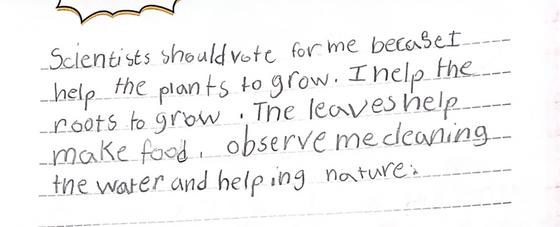 Scientists should vote for me becaseI
help the plants to grow. I help the
roots to grow. The leaves help
make food. observe me cleaning
the water and helping nature.